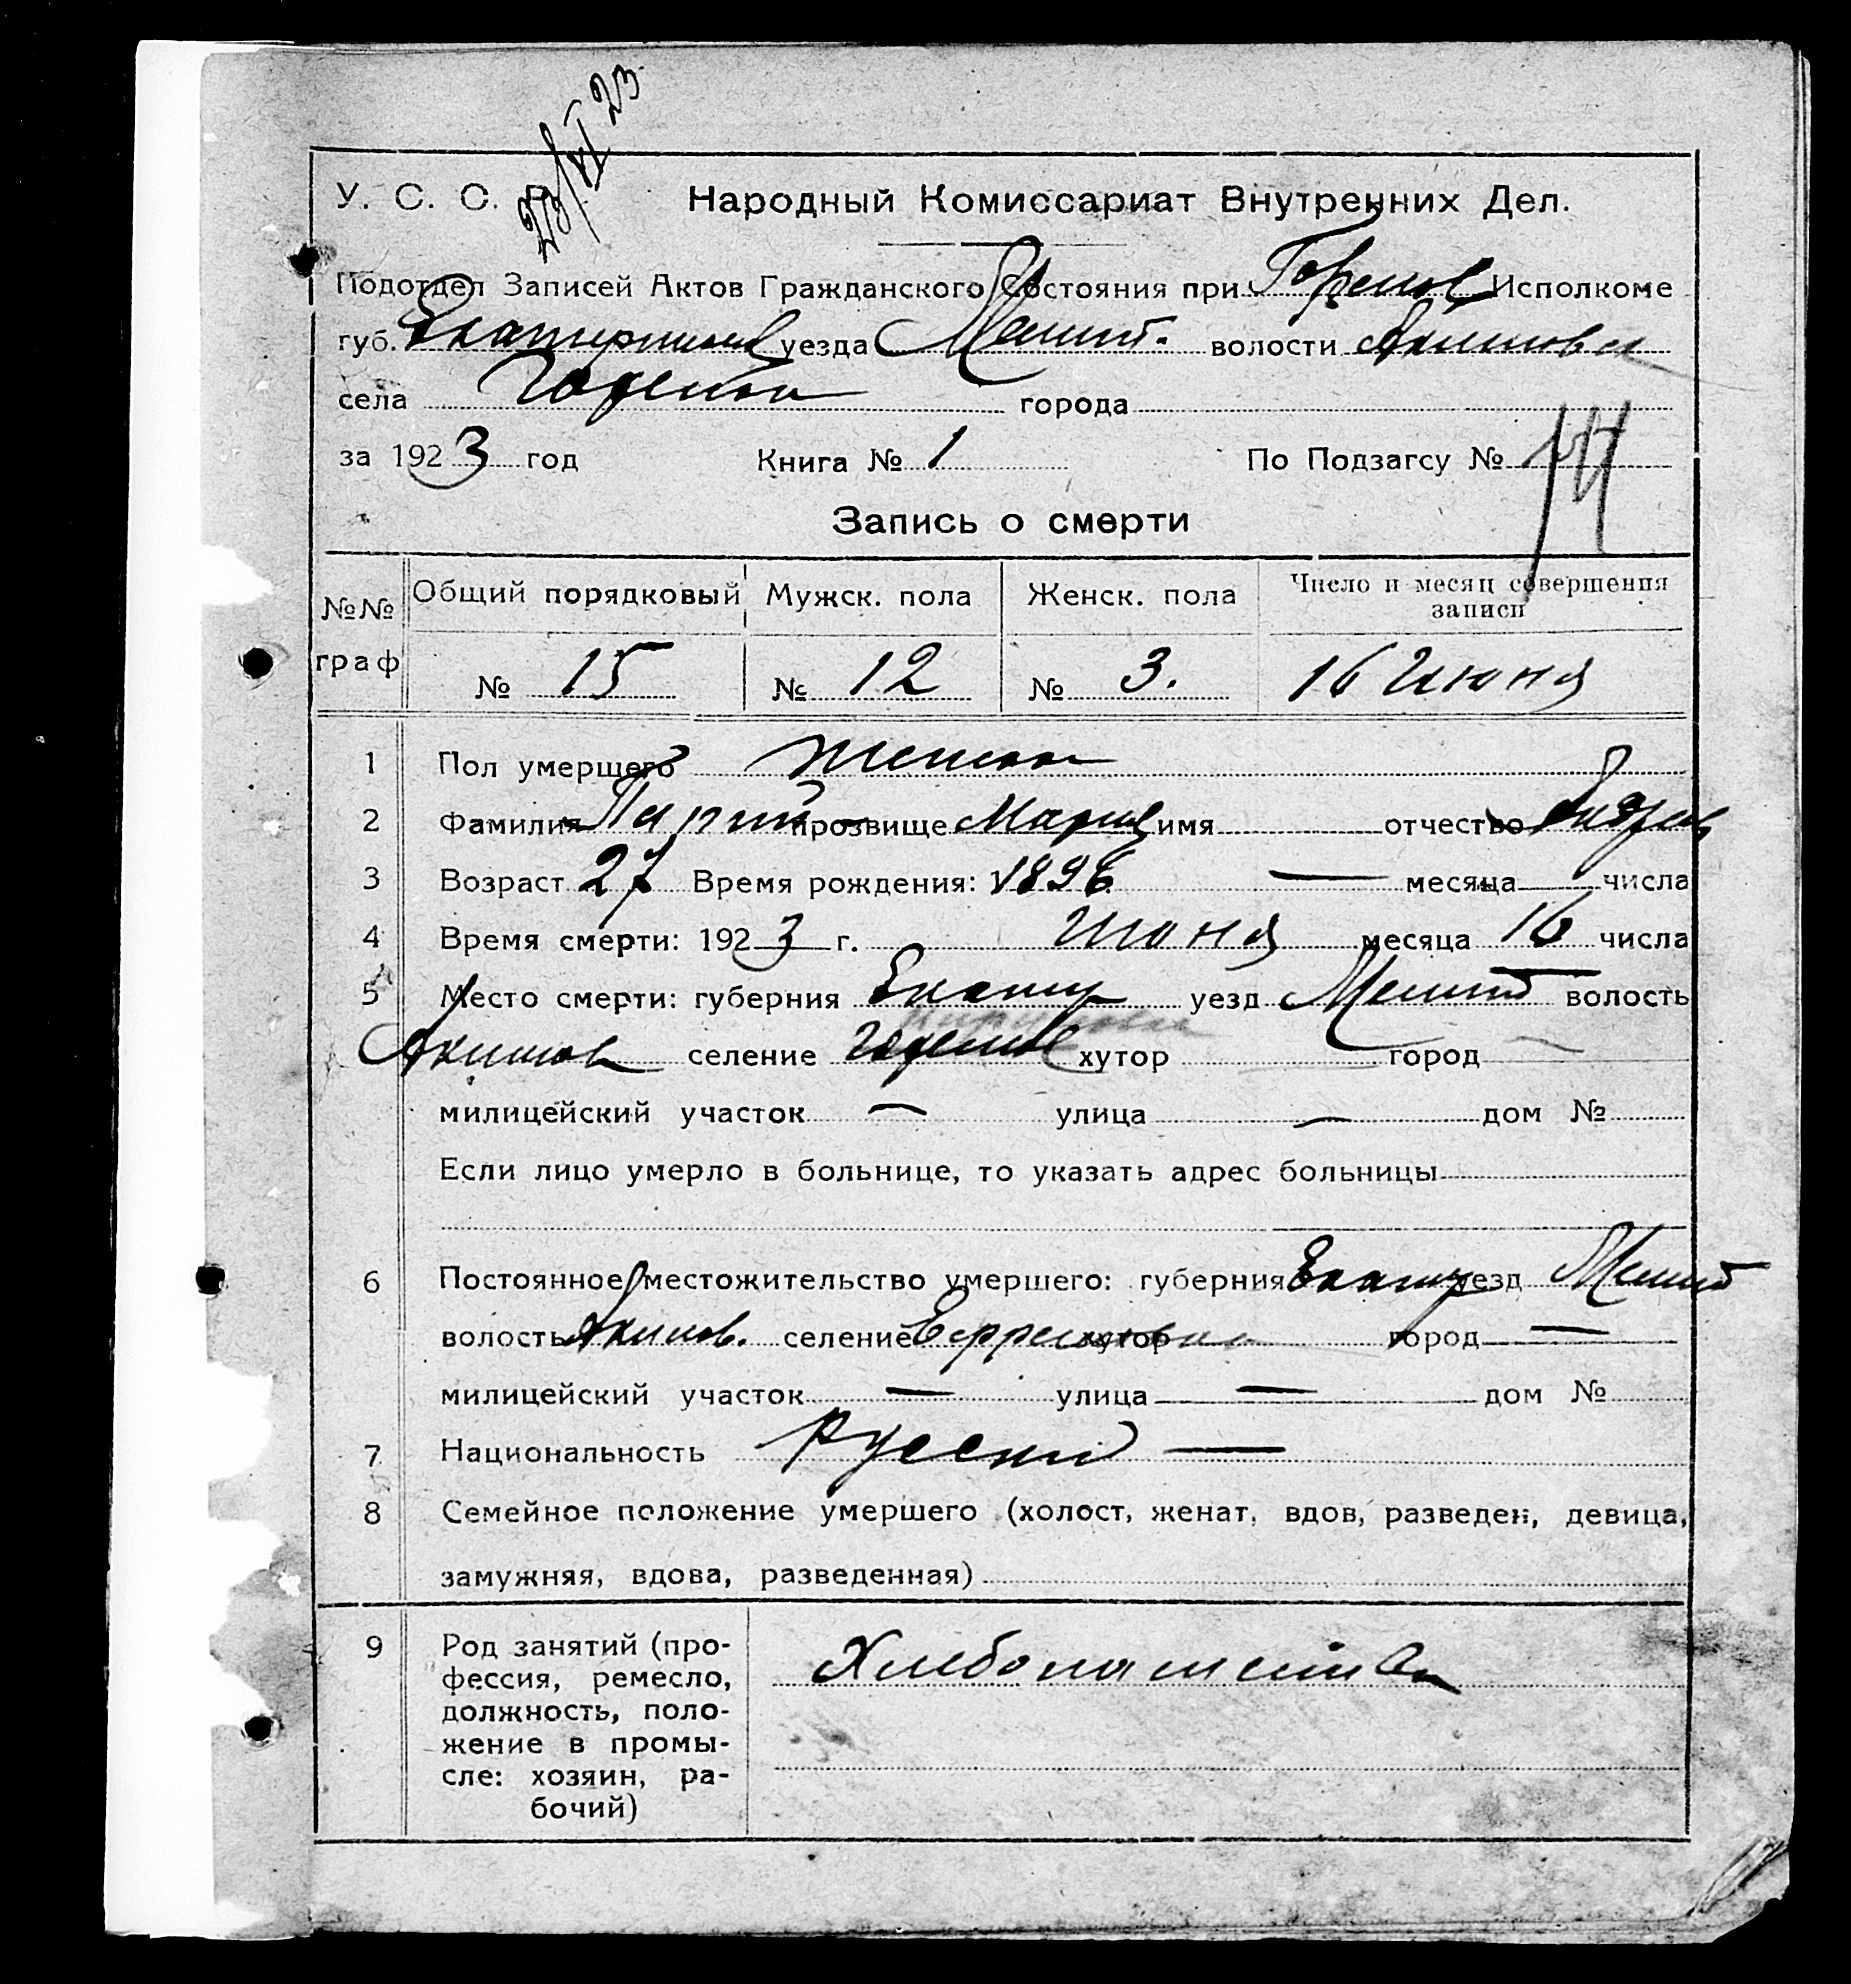 23/VI 23
У. С. С. Р. Народный Комиссариат Внутренних Дел.
Подотдел Записей Актов Гражданского Состояния при Исполкоме
губ. уезда Мелит. волости Акимовск
села города
за 1923 год Книга № 1 По Подзагсу №
Запись о смерти
№№ граф Общий порядковый Мужск. пола Женск. пола Число и месяц совершения записи
№ 15 № 12 № 3. 16 Июня
1 Пол умершего женск
2 Фамилия прозвище Мария имя отчество
3 Возраст 27 Время рождения: 1896 — месяца числа
4 Время смерти: 1923 г. Июня месяца 16 числа
5 Место смерти: губерния Екатер уезд Мелит волость
Акимов селение хутор город
милицейский участок — улица — дом №
Если лицо умерло в больнице, то указать адрес больницы
6 Постоянное местожительство умершего: губерния Екатер уезд Мелит
волость Акимов. селение хутор город —
милицейский участок — улица — дом №
7 Национальность Русский —
8 Семейное положение умершего (холост, женат, вдов, разведен, девица,
замужняя, вдова, разведенная)
9 Род занятий (про-
фессия, ремесло,
должность, поло-
жение в промы-
сле: хозяин, ра-
бочий)